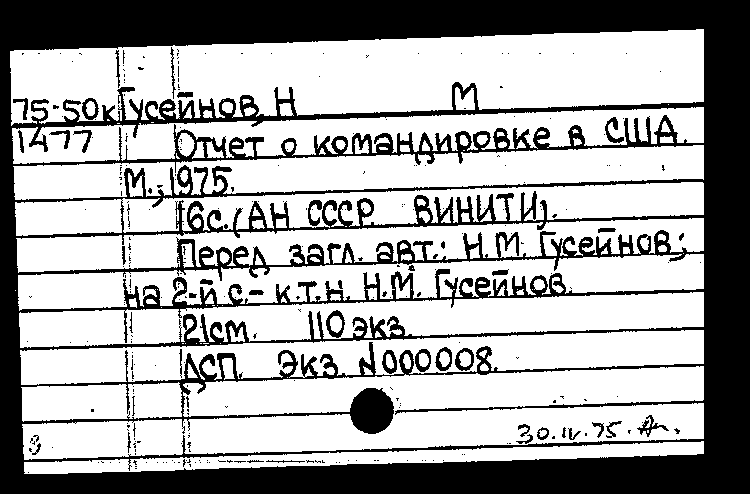 75-50к Гусейнов, Н М
1477 Отчет о командировке в США.
М., 1975.
16с. (АН СССР. ВИНИТИ).
Перед загл. авт.: Н.М. Гусейнов;
на 2-й с.- к.т.н. Н.М. Гусейнов.
21см. 110 экз.
ДСП. Экз. N000008.
30.IV.75.